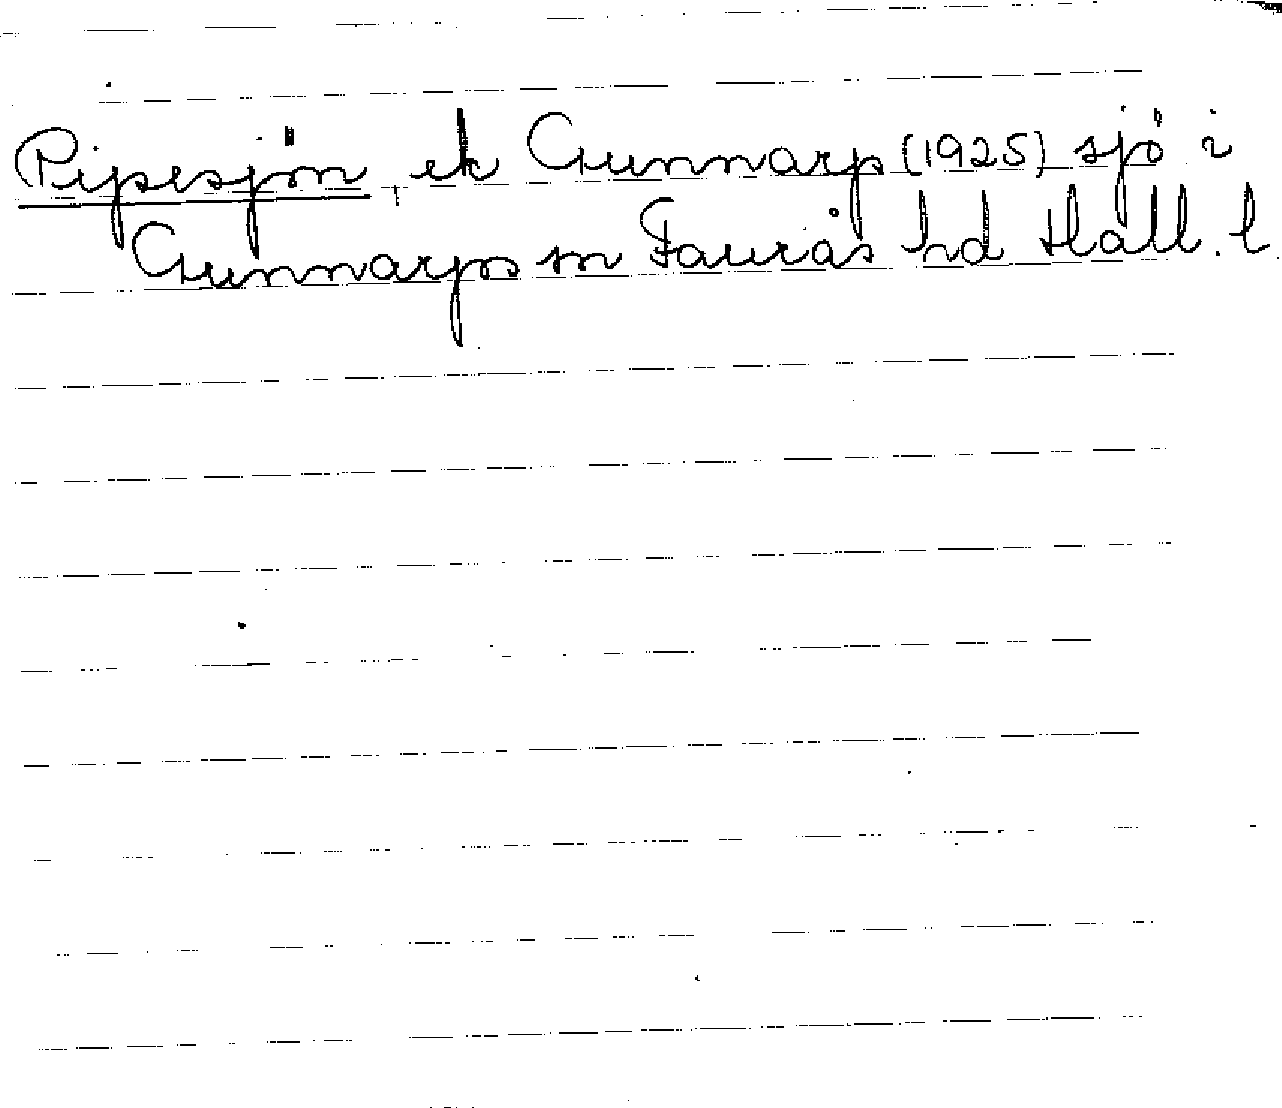 Pipesjön, ek Gunnarp (1925) sjö i
Gunnarps sn Faurås hd Hall. l